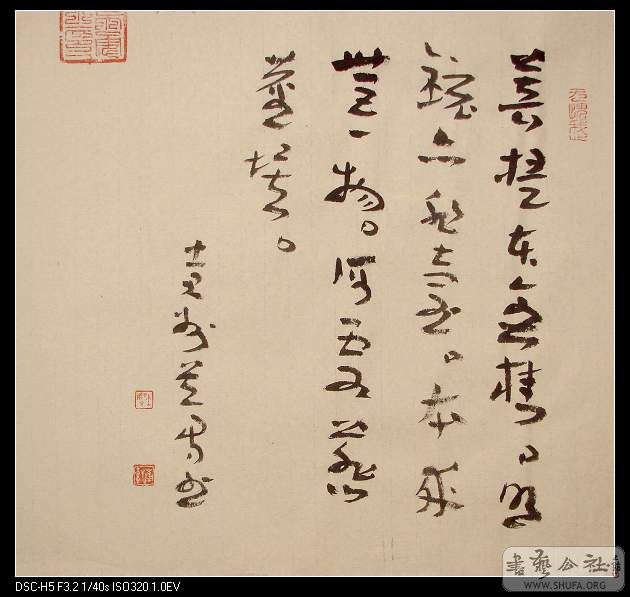 菩提本無樹。明
鏡亦非臺。本來
無一物。何處惹
塵埃。
書
書藝公社
WWW.SHUFA.ORG
DSC-H5 F3.2 1/40s ISO320 1.0EV